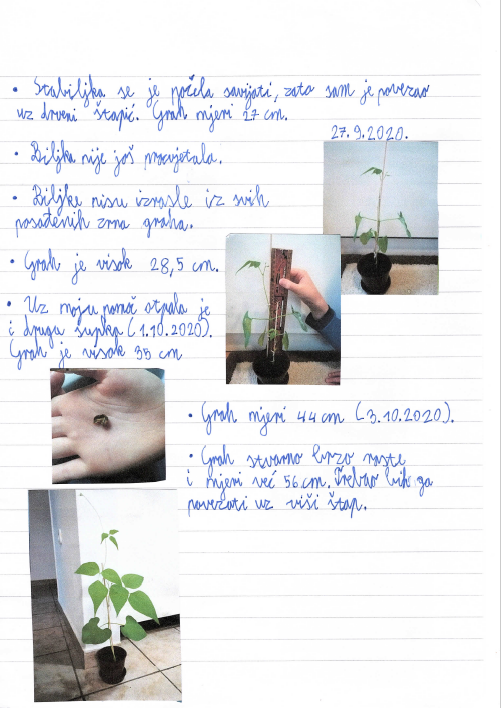 • Stabiljka se je počela savijati, zato sam je povezao
uz drveni štapić. Grah mjeri 27 cm.
27.9.2020.
• Biljka nije još procvjetala.
• Biljke nisu izrasle iz svih
posađenih zrna graha.
• Grah je visok 28,5 cm.
• Uz moju pomoć otpala je
i druga supka (1.10.2020).
Grah je visok 35 cm
• Grah mjeri 44 cm (3.10.2020).
• Grah stvarno brzo raste
i mjeri već 56 cm. Trebao bih ga
povezati uz viši štap.